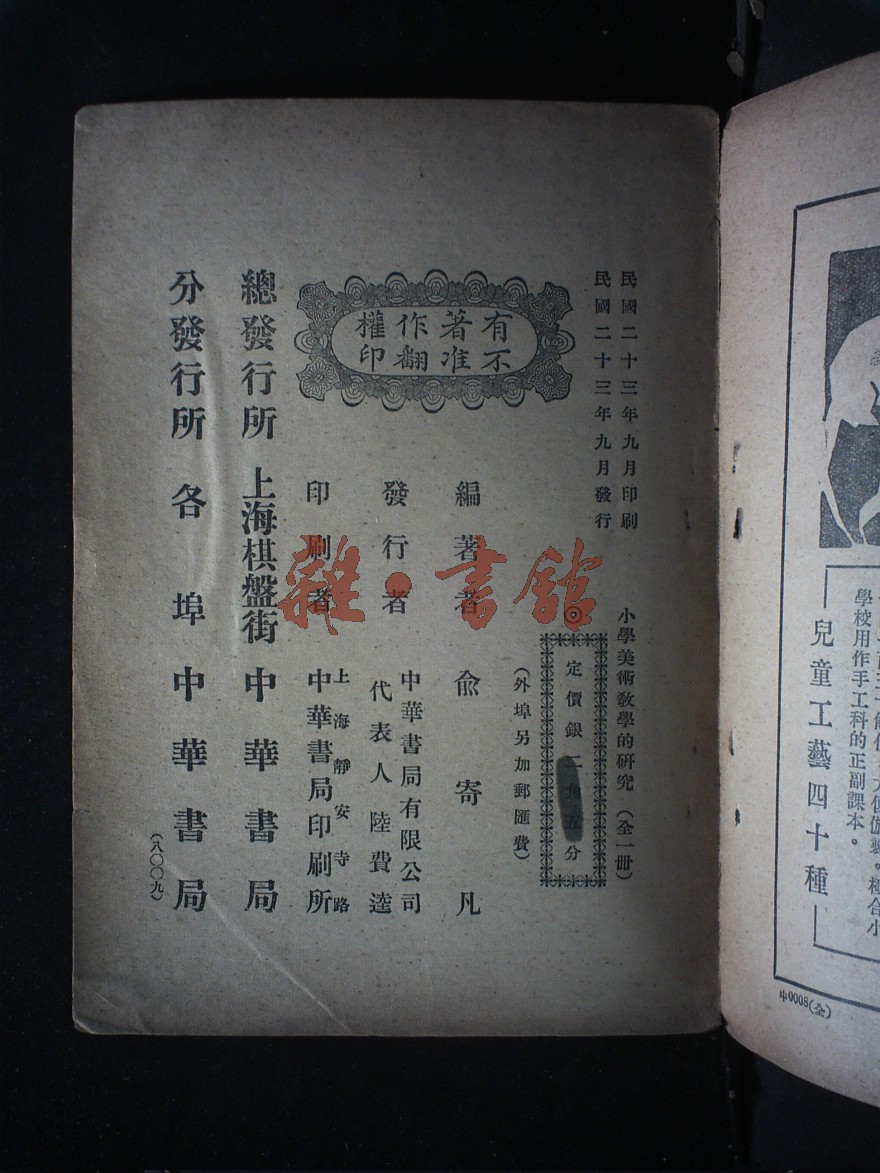 民國二十三年九月印刷
民國二十三年九月發行
小學美術敎學的研究（全一冊）
◎定價銀二角五分
（外埠另加郵匯費）
有著作權
不准翻印
編著者 俞寄凡
發行者 中華書局有限公司
代表人 陸費逵
印刷者 上海靜安寺路
中華書局印刷所
總發行所 上海棋盤街 中華書局
分發行所 各埠 中華書局
（八〇〇九）
雜·書館
學校用作手工科的正副課本。
兒童工藝四十種
中0008(全)